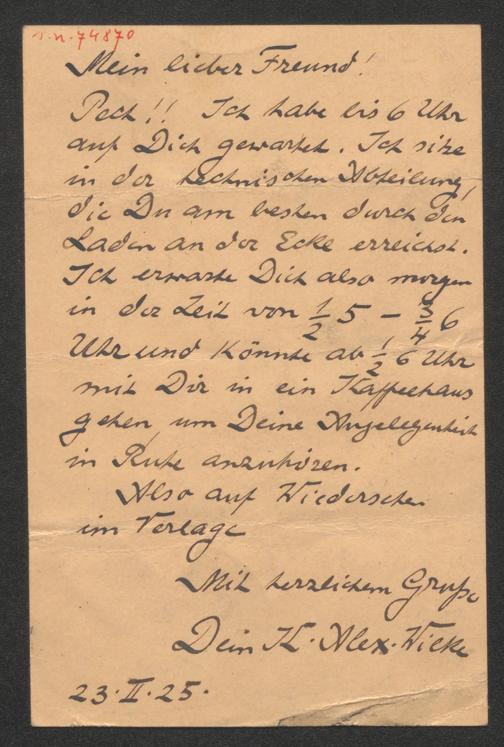 I.N.74870
Mein lieber Freund!
Pech!! Ich habe bis 6 Uhr
auf Dich gewartet. Ich size
in der technischen Abteilung,
die Du am besten durch den
Laden an der Ecke erreichst.
Ich erwarte Dich also morgen
in der Zeit von 1/2 5 - 3/4 6
Uhr und könnte ab 1/2 6 Uhr
mit Dir in ein Kaffeehaus
gehen, um Deine Angelegenheit
in Ruhe anzuhören.
Also auf Wiedersehen
im Verlage
Mit herzlichem Gruße
Dein K. Alex. Wilke
23.II.25.